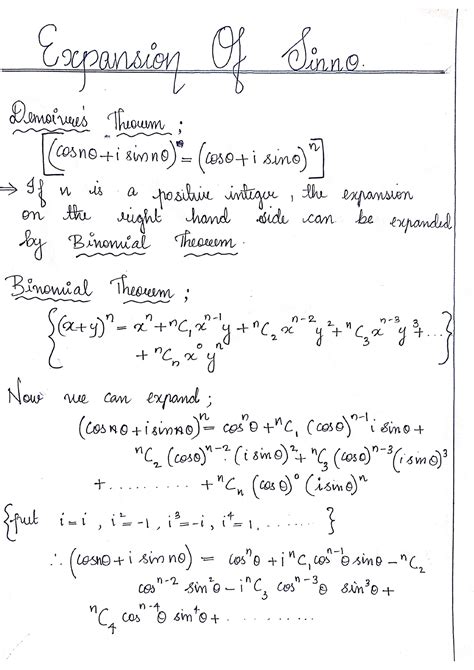 Expansion Of Sinnθ.
Demoivre's Theorem ;
[(cosnθ + i sinnθ) = (cosθ + i sinθ)ⁿ]
⇒ If n is a positive integer, the expansion
on the right hand side can be expanded
by Binomial Theorem.
Binomial Theorem ;
{(x+y)ⁿ = xⁿ + ⁿC₁ xⁿ⁻¹y + ⁿC₂ xⁿ⁻² y² + ⁿC₃ xⁿ⁻³ y³ + ...
+ ⁿCₙ x⁰ yⁿ}
Now we can expand ;
(cosnθ + i sinnθ)ⁿ = cosⁿθ + ⁿC₁ (cosθ)ⁿ⁻¹ i sinθ +
ⁿC₂ (cosθ)ⁿ⁻² (i sinθ)² + ⁿC₃ (cosθ)ⁿ⁻³ (i sinθ)³
+ ......... + ⁿCₙ (cosθ)⁰ (i sinθ)ⁿ
{put i=i, i²=-1, i³=-i, i⁴=1, ....... }
∴ (cosnθ + i sinnθ) = cosⁿθ + i ⁿC₁ cosⁿ⁻¹θ sinθ - ⁿC₂
cosⁿ⁻² sin²θ - i ⁿC₃ cosⁿ⁻³θ sin³θ +
ⁿC₄ cosⁿ⁻⁴θ sin⁴θ + .......